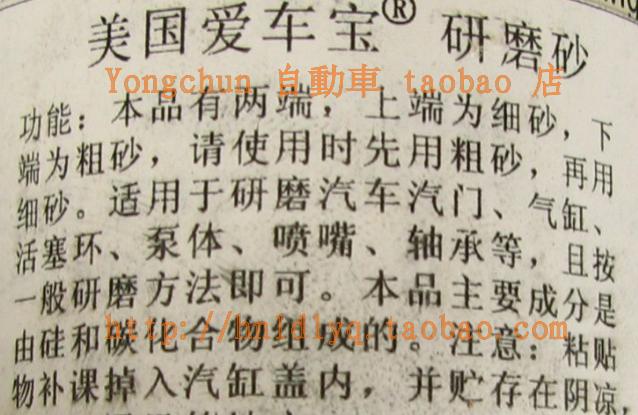 美国爱车宝® 研磨砂
Yongchun 自動車 taobao 店
功能：本品有两端，上端为细砂，下
端为粗砂，请使用时先用粗砂，再用
细砂。适用于研磨汽车汽门、气缸、
活塞环、泵体、喷嘴、轴承等，且按
一般研磨方法即可。本品主要成分是
http://hnldlyq.taobao.com
由硅和碳化合物组成的。注意：粘贴
物补课掉入汽缸盖内，并贮存在阴凉，